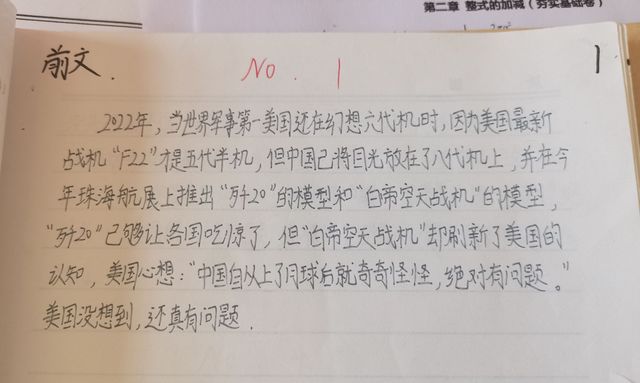 第二章 整式的加减（夯实基础卷）
前文. NO. 1 1
2022年，当世界军事第一美国还在幻想六代机时，因为美国最新
战机“F22”才是五代半机，但中国已将目光放在了八代机上，并在今
年珠海航展上推出“歼20”的模型和“白帝空天战机”的模型，
“歼20”已够让各国吃惊了，但“白帝空天战机”却刷新了美国的
认知，美国心想：“中国自从上了月球后就奇奇怪怪，绝对有问题。”
美国没想到，还真有问题.